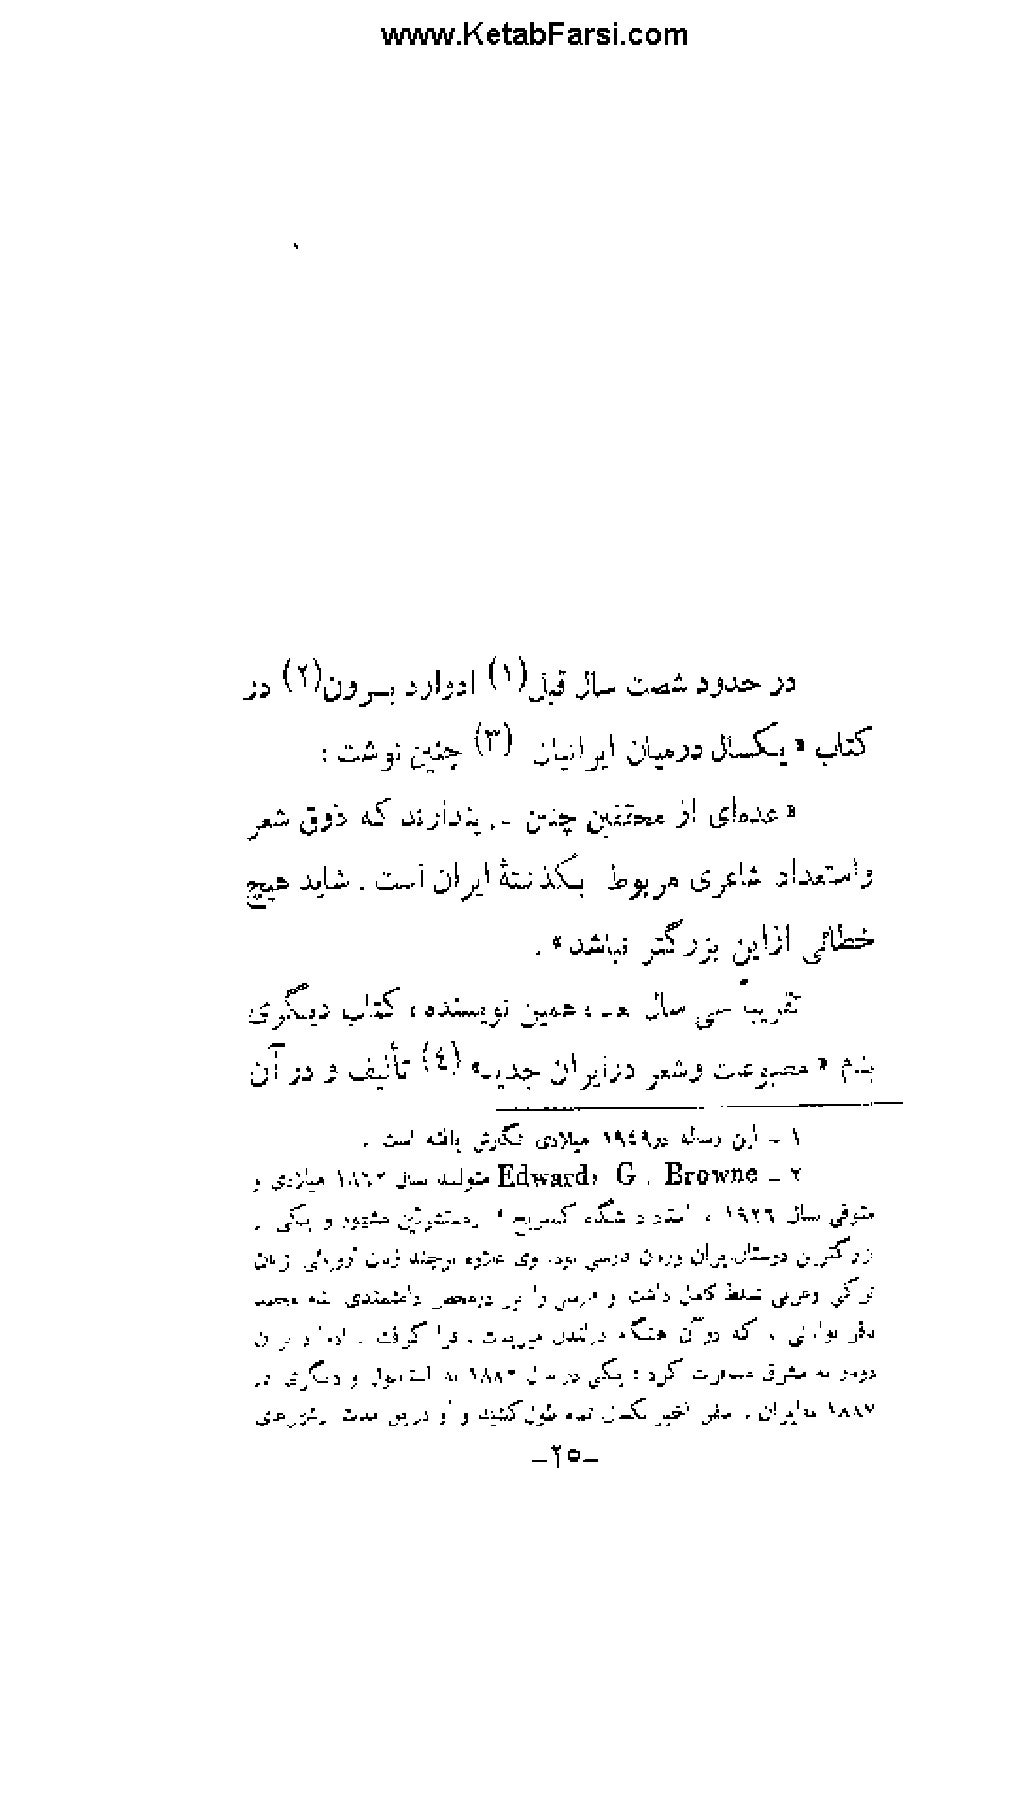 www.KetabFarsi.com
در حدود شصت سال قبل(۱) ادوارد بسرون(۲) در
کتاب « یکسال درمیان ایرانیان (۳) چنین نوشت :
« عده‌ای از محققین چنین می‌پندارند که ذوق شعر
و استعداد شاعری مربوط بگذشتهٔ ایران است . شاید هیچ
خطائی از این بزرگتر نباشد » .
تقریباً سی سال بعد ، همین نویسنده ، کتاب دیگری
بنام « مطبوعات و شعر در ایران جدید» (٤) تألیف و در آن
۱ ـ این رساله در ۱۹٤۹ میلادی نگارش یافته است .
۲ ـ Edward G . Browne متولد سال میلادی و
متوفی سال ۱۹۲٦ ، استاد دانشگاه کمبریج مستشرقین مشهور و یکی
بزرگترین دوستان ایران و زبان فارسی بود. وی علاوه بر چند زبان اروپائی زبان
ترکی و عربی تسلط کامل داشت و فارسی را نیز در محضر دانشمندی محمد
باقر بواناتی ، که در آن هنگام در لندن میزیست ، فرا گرفت .
به مشرق مسافرت کرد : یکی در سال به استامبول و دیگری در
۱۸۸۷ به ایران . سفر اخیر یکسال تمام طول کشید و او در این مدت
ـ۲٥ـ